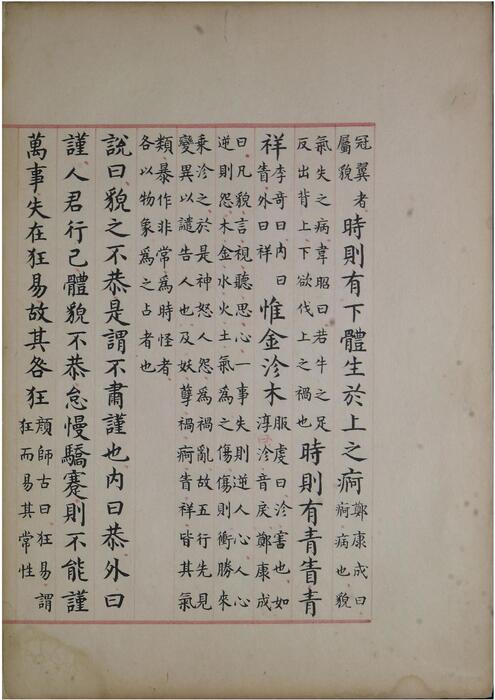 冠翼者
屬貌
時則有下體生於上之痾
鄭康成曰
痾病也貌
氣失之病韋昭曰若牛之足
反出背上下欲伐上之禍也
時則有青眚青
祥
李奇曰內曰
眚外曰祥
惟金沴木
服虔曰沴害也如
淳曰沴音戾鄭康成
曰凡貌言視聽思心一事失則逆人心人心
逆則怨木金水火土氣爲之傷傷則衝勝來
乘沴之於是神怒人怨爲禍亂故五行先見
變異以譴告人也及妖孽禍痾眚祥皆其氣
類暴作非常爲時怪者
各以物象爲之占者也
說曰貌之不恭是謂不肅謹也內曰恭外曰
謹人君行己體貌不恭怠慢驕蹇則不能謹
萬事失在狂易故其咎狂
顏師古曰狂易謂
狂而易其常性